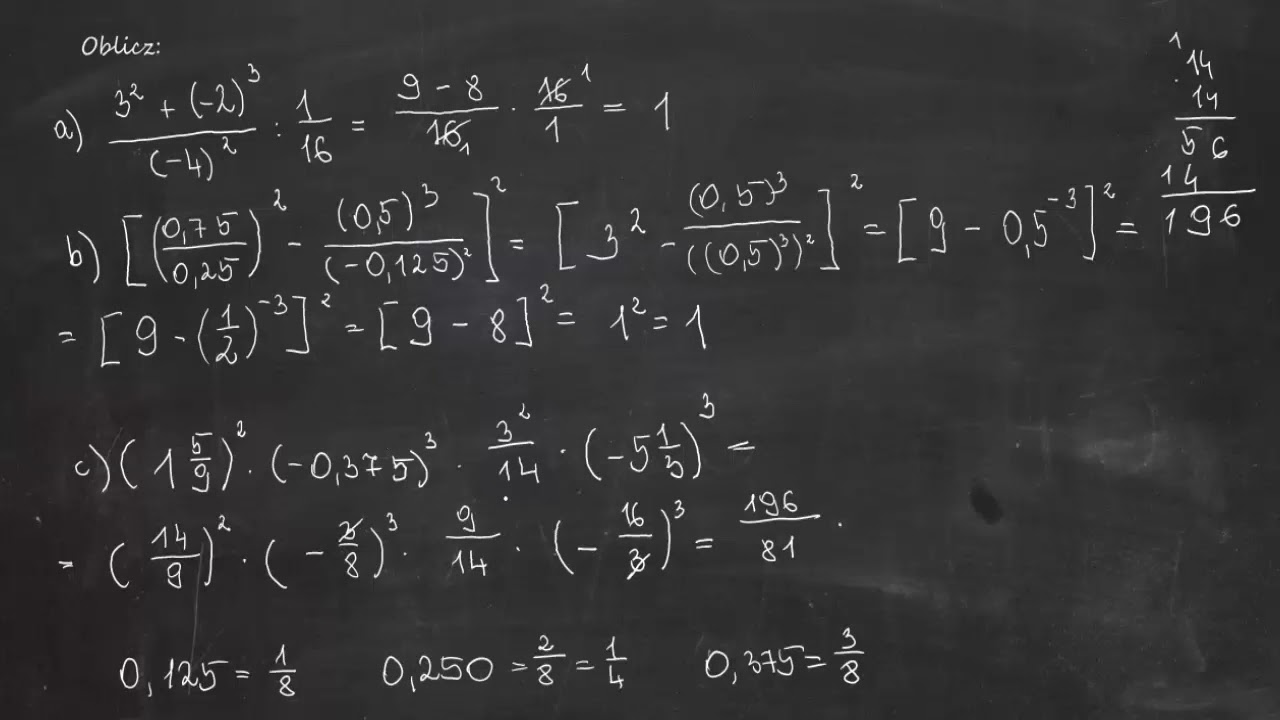 Oblicz:
a) \frac{3^2 + (-2)^3}{(-4)^2} : \frac{1}{16} = \frac{9 - 8}{16_1} \cdot \frac{16^1}{1} = 1
b) [(\frac{0,75}{0,25})^2 - \frac{(0,5)^3}{(-0,125)^2}]^2 = [3^2 - \frac{(0,5)^3}{((0,5)^3)^2}]^2 = [9 - 0,5^{-3}]^2 =
= [9 - (\frac{1}{2})^{-3}]^2 = [9 - 8]^2 = 1^2 = 1
c) (1\frac{5}{9})^2 \cdot (-0,375)^3 \cdot \frac{3^2}{14} \cdot (-5\frac{1}{3})^3 =
= (\frac{14}{9})^2 \cdot (-\frac{3}{8})^3 \cdot \frac{9}{14} \cdot (-\frac{16}{3})^3 = \frac{196}{81} \cdot
0,125 = \frac{1}{8} 0,250 = \frac{2}{8} = \frac{1}{4} 0,375 = \frac{3}{8}
1
14
\cdot 14
56
14
196